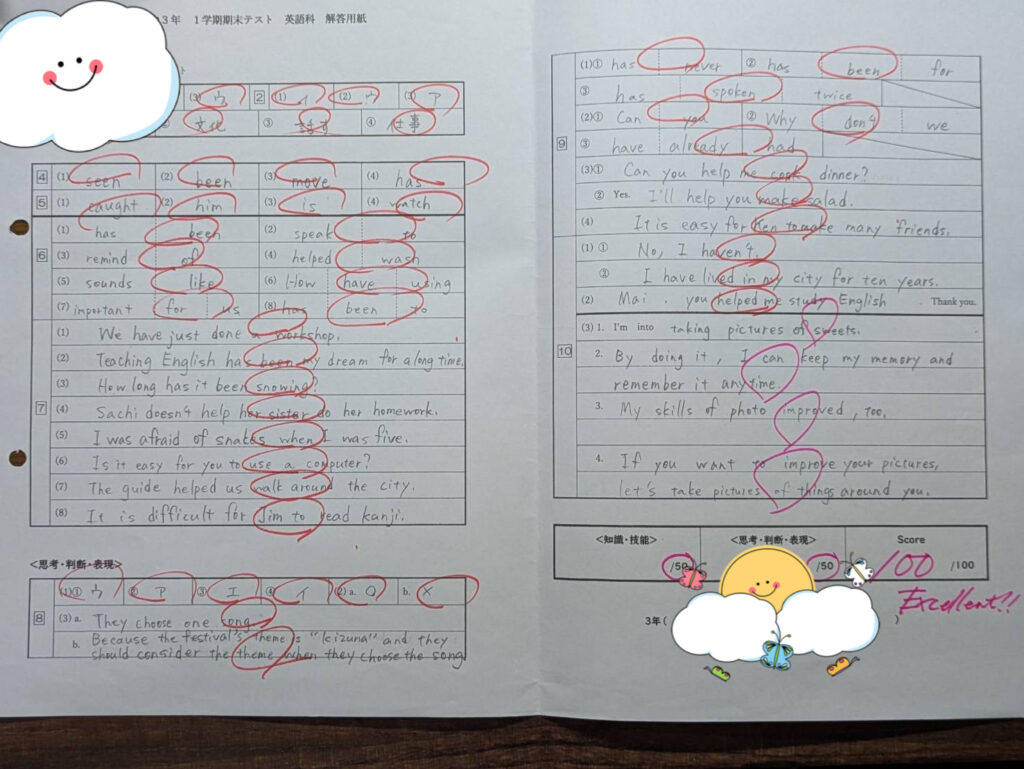 3年 1学期期末テスト 英語科 解答用紙
(3) ウ 2 (1) イ (2) ウ (3) ア
文化 ③ ④ 仕事
4 (1) seen (2) been (3) move (4) has
5 (1) caught (2) him (3) is (4) watch
6 (1) has been (2) speak to
(3) remind of (4) helped wash
(5) sounds like (6) How have using
(7) important for us (8) has been to
7 (1) We have just done a workshop.
(2) Teaching English has been my dream for a long time.
(3) How long has it been snowing?
(4) Sachi doesn't help her sister do her homework.
(5) I was afraid of snakes when I was five.
(6) Is it easy for you to use a computer?
(7) The guide helped us walk around the city.
(8) It is difficult for Jim to read kanji.
<思考・判断・表現>
8 (1)① ウ ② ア ③ エ ④ イ (2)a. ○ b. ×
(3) a. They choose one song.
b. Because the festival's theme is "kizuna" and they
should consider the theme when they choose the song
9 (1)① has never ② has been for
③ has spoken twice
(2)① Can you ② Why don't we
③ have already had
(3)① Can you help me cook dinner?
② Yes. I'll help you make salad.
(4) It is easy for Ken to make many friends.
10 (1) ① No, I haven't.
② I have lived in my city for ten years.
(2) Mai, you helped me study English. Thank you.
(3) 1. I'm into taking pictures of sweets.
2. By doing it, I can keep my memory and
remember it anytime.
3. My skills of photo improved, too.
4. If you want to improve your pictures,
let's take pictures of things around you.
<知識・技能> <思考・判断・表現> Score
/50 /50 100 /100
Excellent!!
3年( )